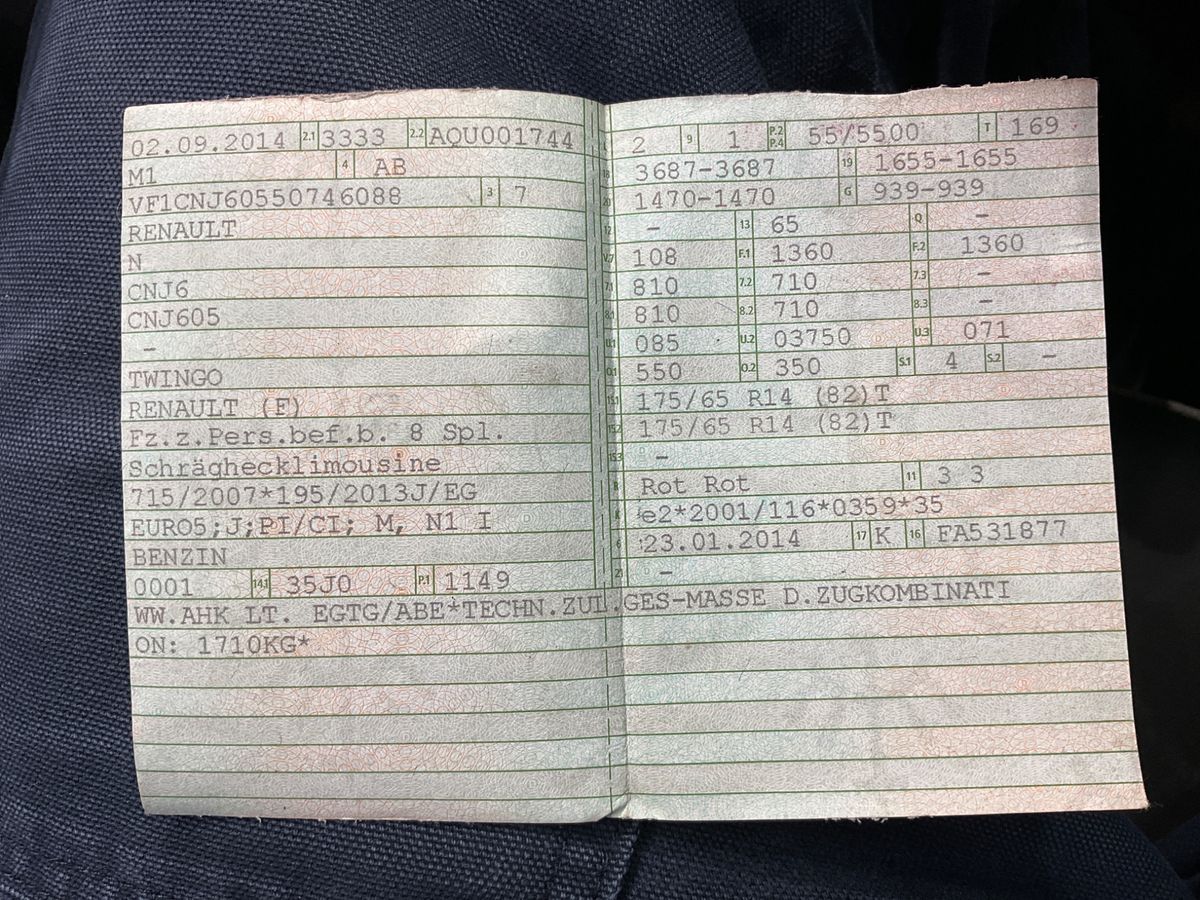 02.09.2014 2.1 3333 2.2 AQU001744
M1 4 AB
VF1CNJ60550746088 3 7
RENAULT
N
CNJ6
CNJ605
–
TWINGO
RENAULT (F)
Fz.z.Pers.bef.b. 8 Spl.
Schräghecklimousine
715/2007*195/2013J/EG
EURO5;J;PI/CI; M, N1 I
BENZIN
0001 14.1 35J0 P.1 1149
WW.AHK LT. EGTG/ABE*TECHN.ZUL.GES-MASSE D.ZUGKOMBINATI
ON: 1710KG*
2 9 1 P.2 P.4 55/5500 T 169
18 3687-3687 19 1655-1655
20 1470-1470 G 939-939
12 – 13 65 Q –
V.7 108 F.1 1360 F.2 1360
7.1 810 7.2 710 7.3 –
8.1 810 8.2 710 8.3 –
U.1 085 U.2 03750 U.3 071
O.1 550 O.2 350 S.1 4 S.2 –
15.1 175/65 R14 (82)T
15.2 175/65 R14 (82)T
15.3 –
R Rot Rot 11 3 3
K e2*2001/116*0359*35
6 23.01.2014 17 K 16 FA531877
21 –